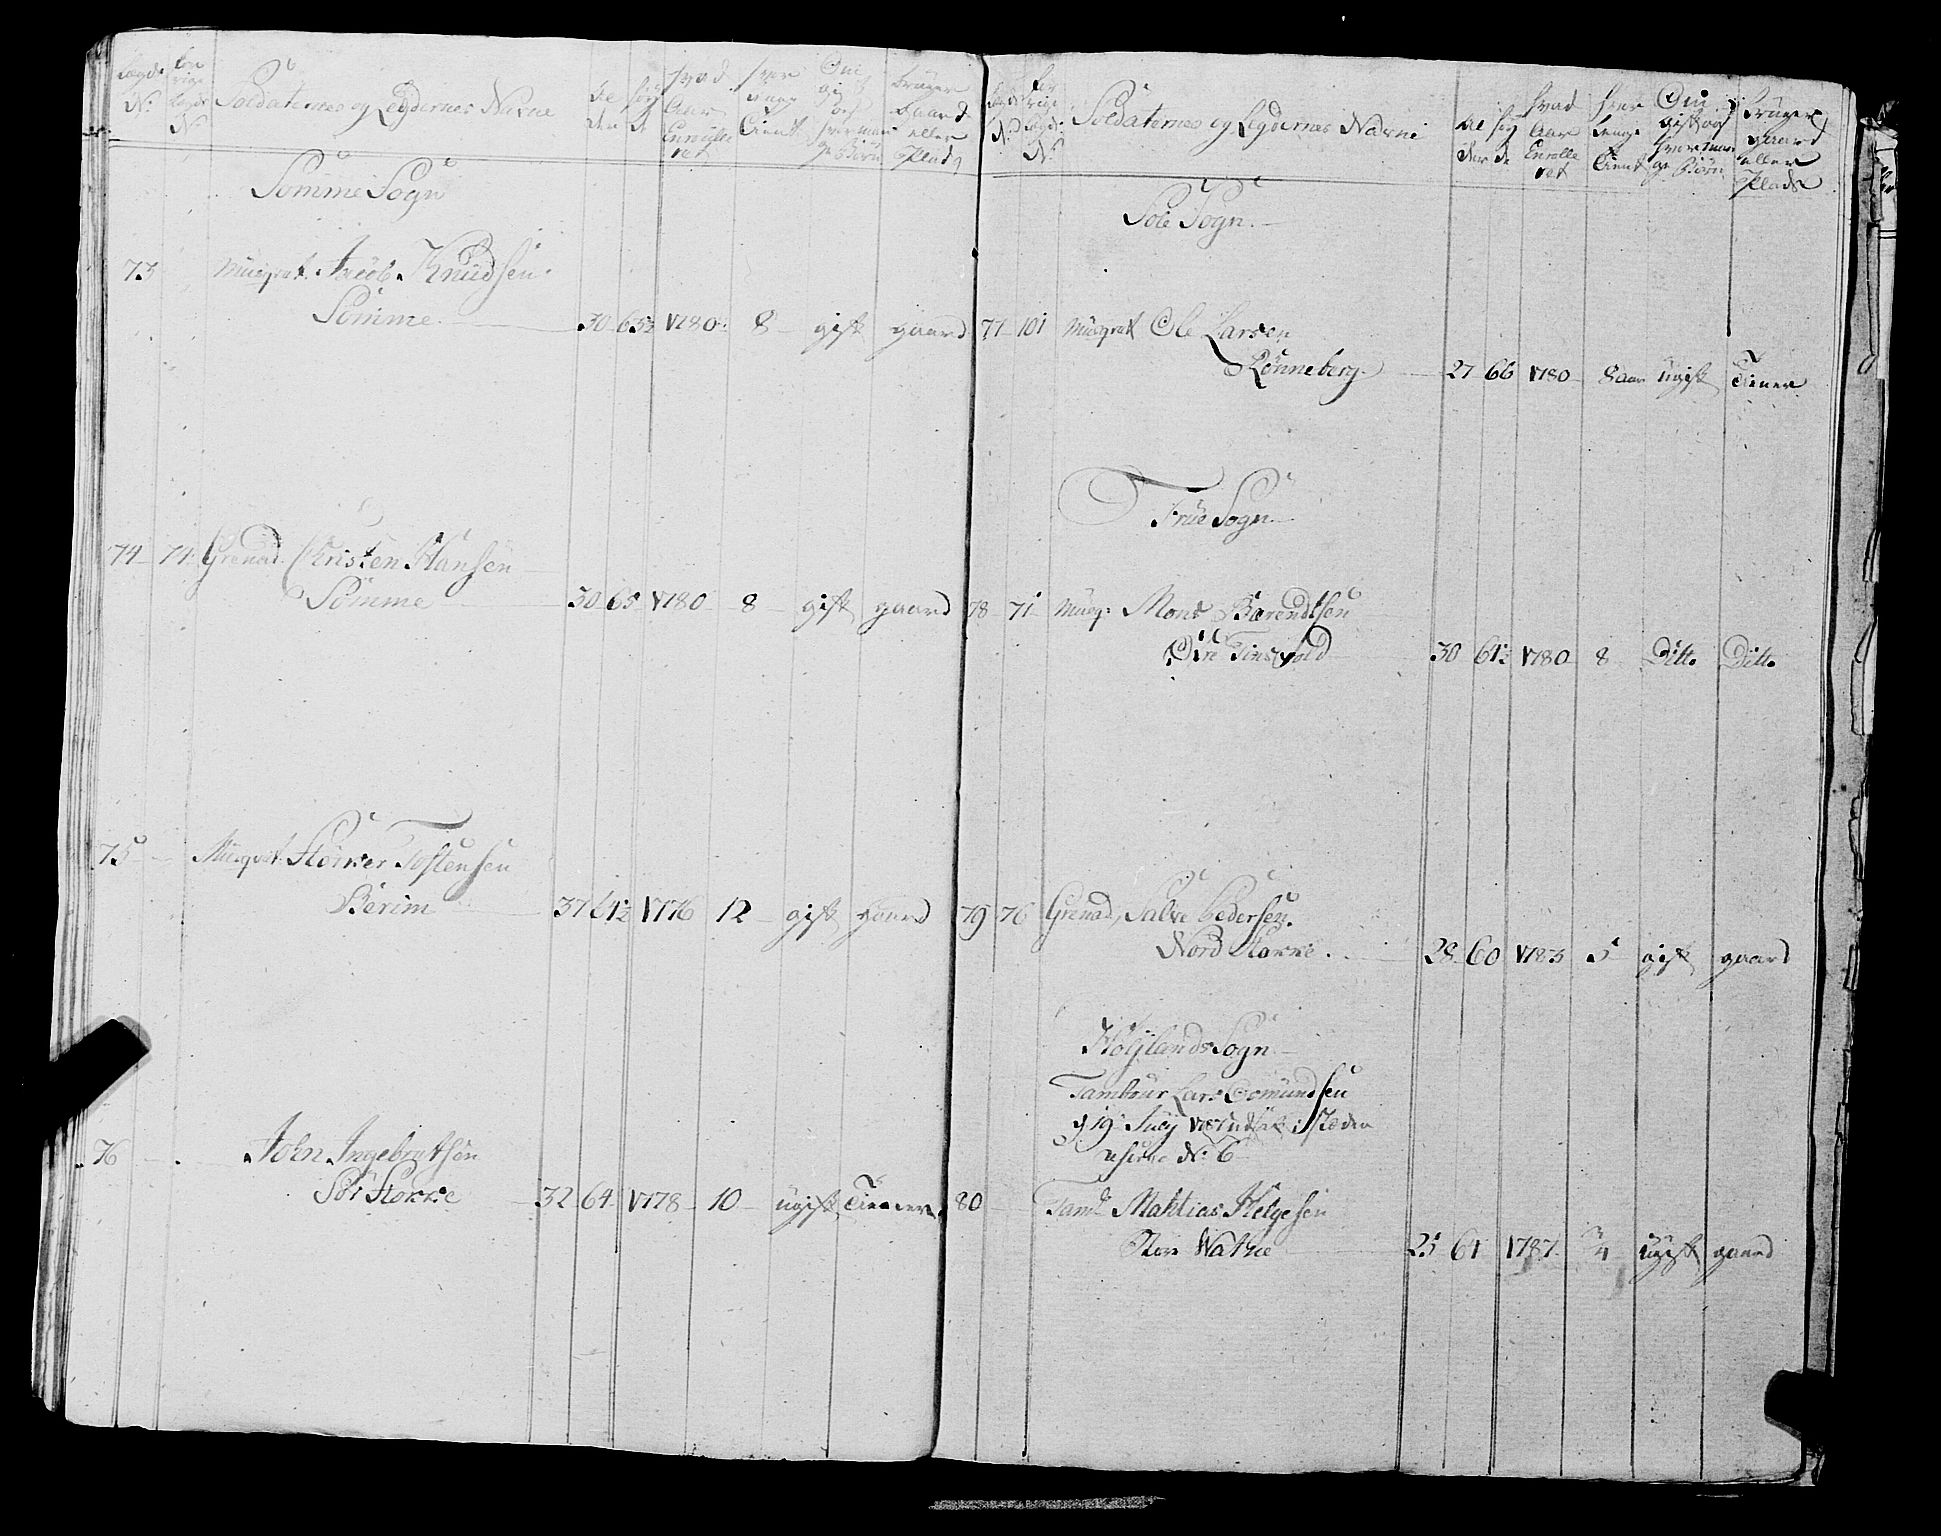 Lægds N:
For rige Lægds N:
Soldaternes og Legdernes Navne
Al der
Høy de
Hvad Aar Enrolle ret
Hvor Længe Tient
Om Gift og hvor man ge Børn
Bruger Gaard eller Plads
Somme Sogn
73 Musqvet. Jacob Knudsen.
Somme. 30 65½ 1780. 8 gift gaard
74 71 Grenad. Christen Hansen
Somme 30 65 1780 8 gift gaard
75 Musqvet
Tostensen
37 61½ 1776 12 gift gaard
76 John Ingebretsen
32 64 1778 10 ugift Tiener
Lægds N:
For rige Lægds N:
Soldaternes og Legdernes Navne
Al der
Høy de
Hvad Aar Enrolle ret
Hvor Længe Tient
Om Gift og hvor man ge Børn
Bruger gaard eller Plads
Sole Sogn.
77 101 Musqvet Ole Larsen
Rönneberg 27 66 1780 8 aar ugift Tiener
Frue Sogn
78 71 Musq: Mons Barendtsen
30 61½ 1780 8 Ditto Ditto
79 76 Grenad, Salve Pedersen.
Nord 28 60 1783 5 gift gaard
Höÿlands Sogn
Tambour Lars Osmundsen
d 19 July 1787 udsat i Steden
N: 6
80 Tamb Mahtias Helgesen
Store Watne 25 61 1787 4 ugift gaard